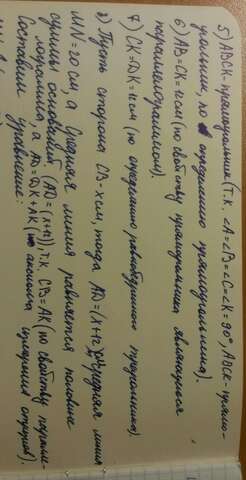 5) ABCK - прямоугольник (т.к. ∠A=∠B=∠C=∠K=90°, ABCK - прямо-
угольник, по определению прямоугольника).
6) AB=CK=12см (по свойству прямоугольника являющегося
параллелограммом).
7) CK=DK=12см (по определению равнобедренного треугольника)
8) Пусть сторона CB - x см, тогда AD=(x+12)см средняя линия
MN=20см, а средняя линия равняется половине
суммы оснований (AD=(x+12)) т.к. CB=AK (по свойству паралле-
лограмма, а AD=DK+AK (по аксиоме измерения отрезков).
Составим уравнение: